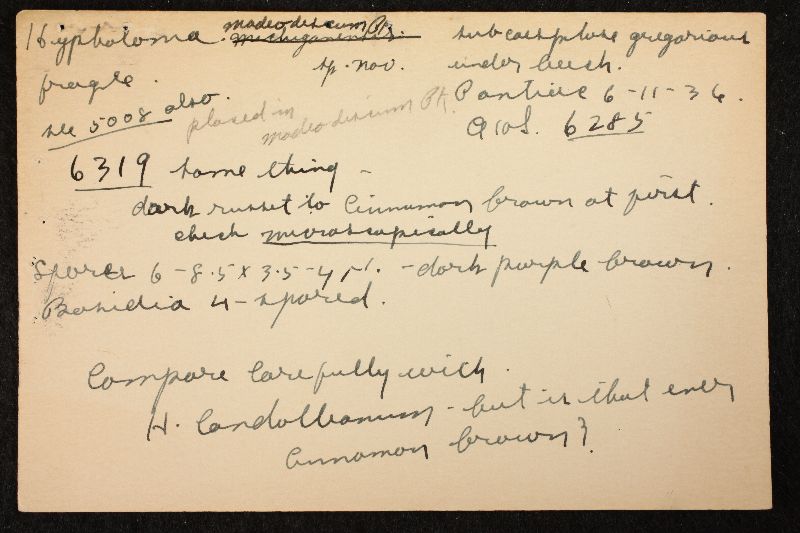 Hypholoma madeodiscum Pk.
michiganensis.
sp. nov.
fragile.
see 5008 also.
placed in
madeodiscum Pk.
subcaespitose gregarious
under beech.
Pontiac 6-11-36.
also. 6285
6319 same thing -
dark russet to Cinnamon brown at first.
check microscopically
Spores 6-8.5 x 3.5-4 µ. - dark purple brown.
Basidia 4-spored.
Compare carefully with.
H. Candolleanum - but is that ever
Cinnamon brown?